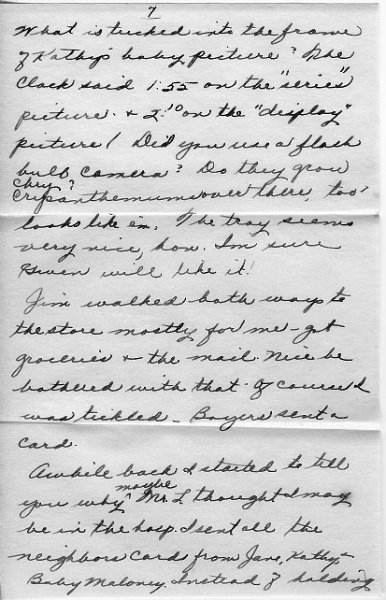 7
What is tucked into the frame
of Kathy's baby picture? The
Clock said 1:55 on the "series"
picture. & 2:10 on the "display"
picture! Did you use a flash
bulb camera? Do they grow
Chry?
Cripanthemums over there, too?
looks like em. The tray seems
very nice, hon. I'm sure
Gwen will like it!
Jim walked both ways to
the store mostly for me - get
groceries & the mail. Nice he
bothered with that. Of course I
was tickled - Boyers sent a
card.
Awhile back I started to tell
maybe
you why ^ Mr. L thought I may
be in the hosp. I sent all the
neighbors Cards from Jane, Kathy &
Baby Maloney. Instead of holding